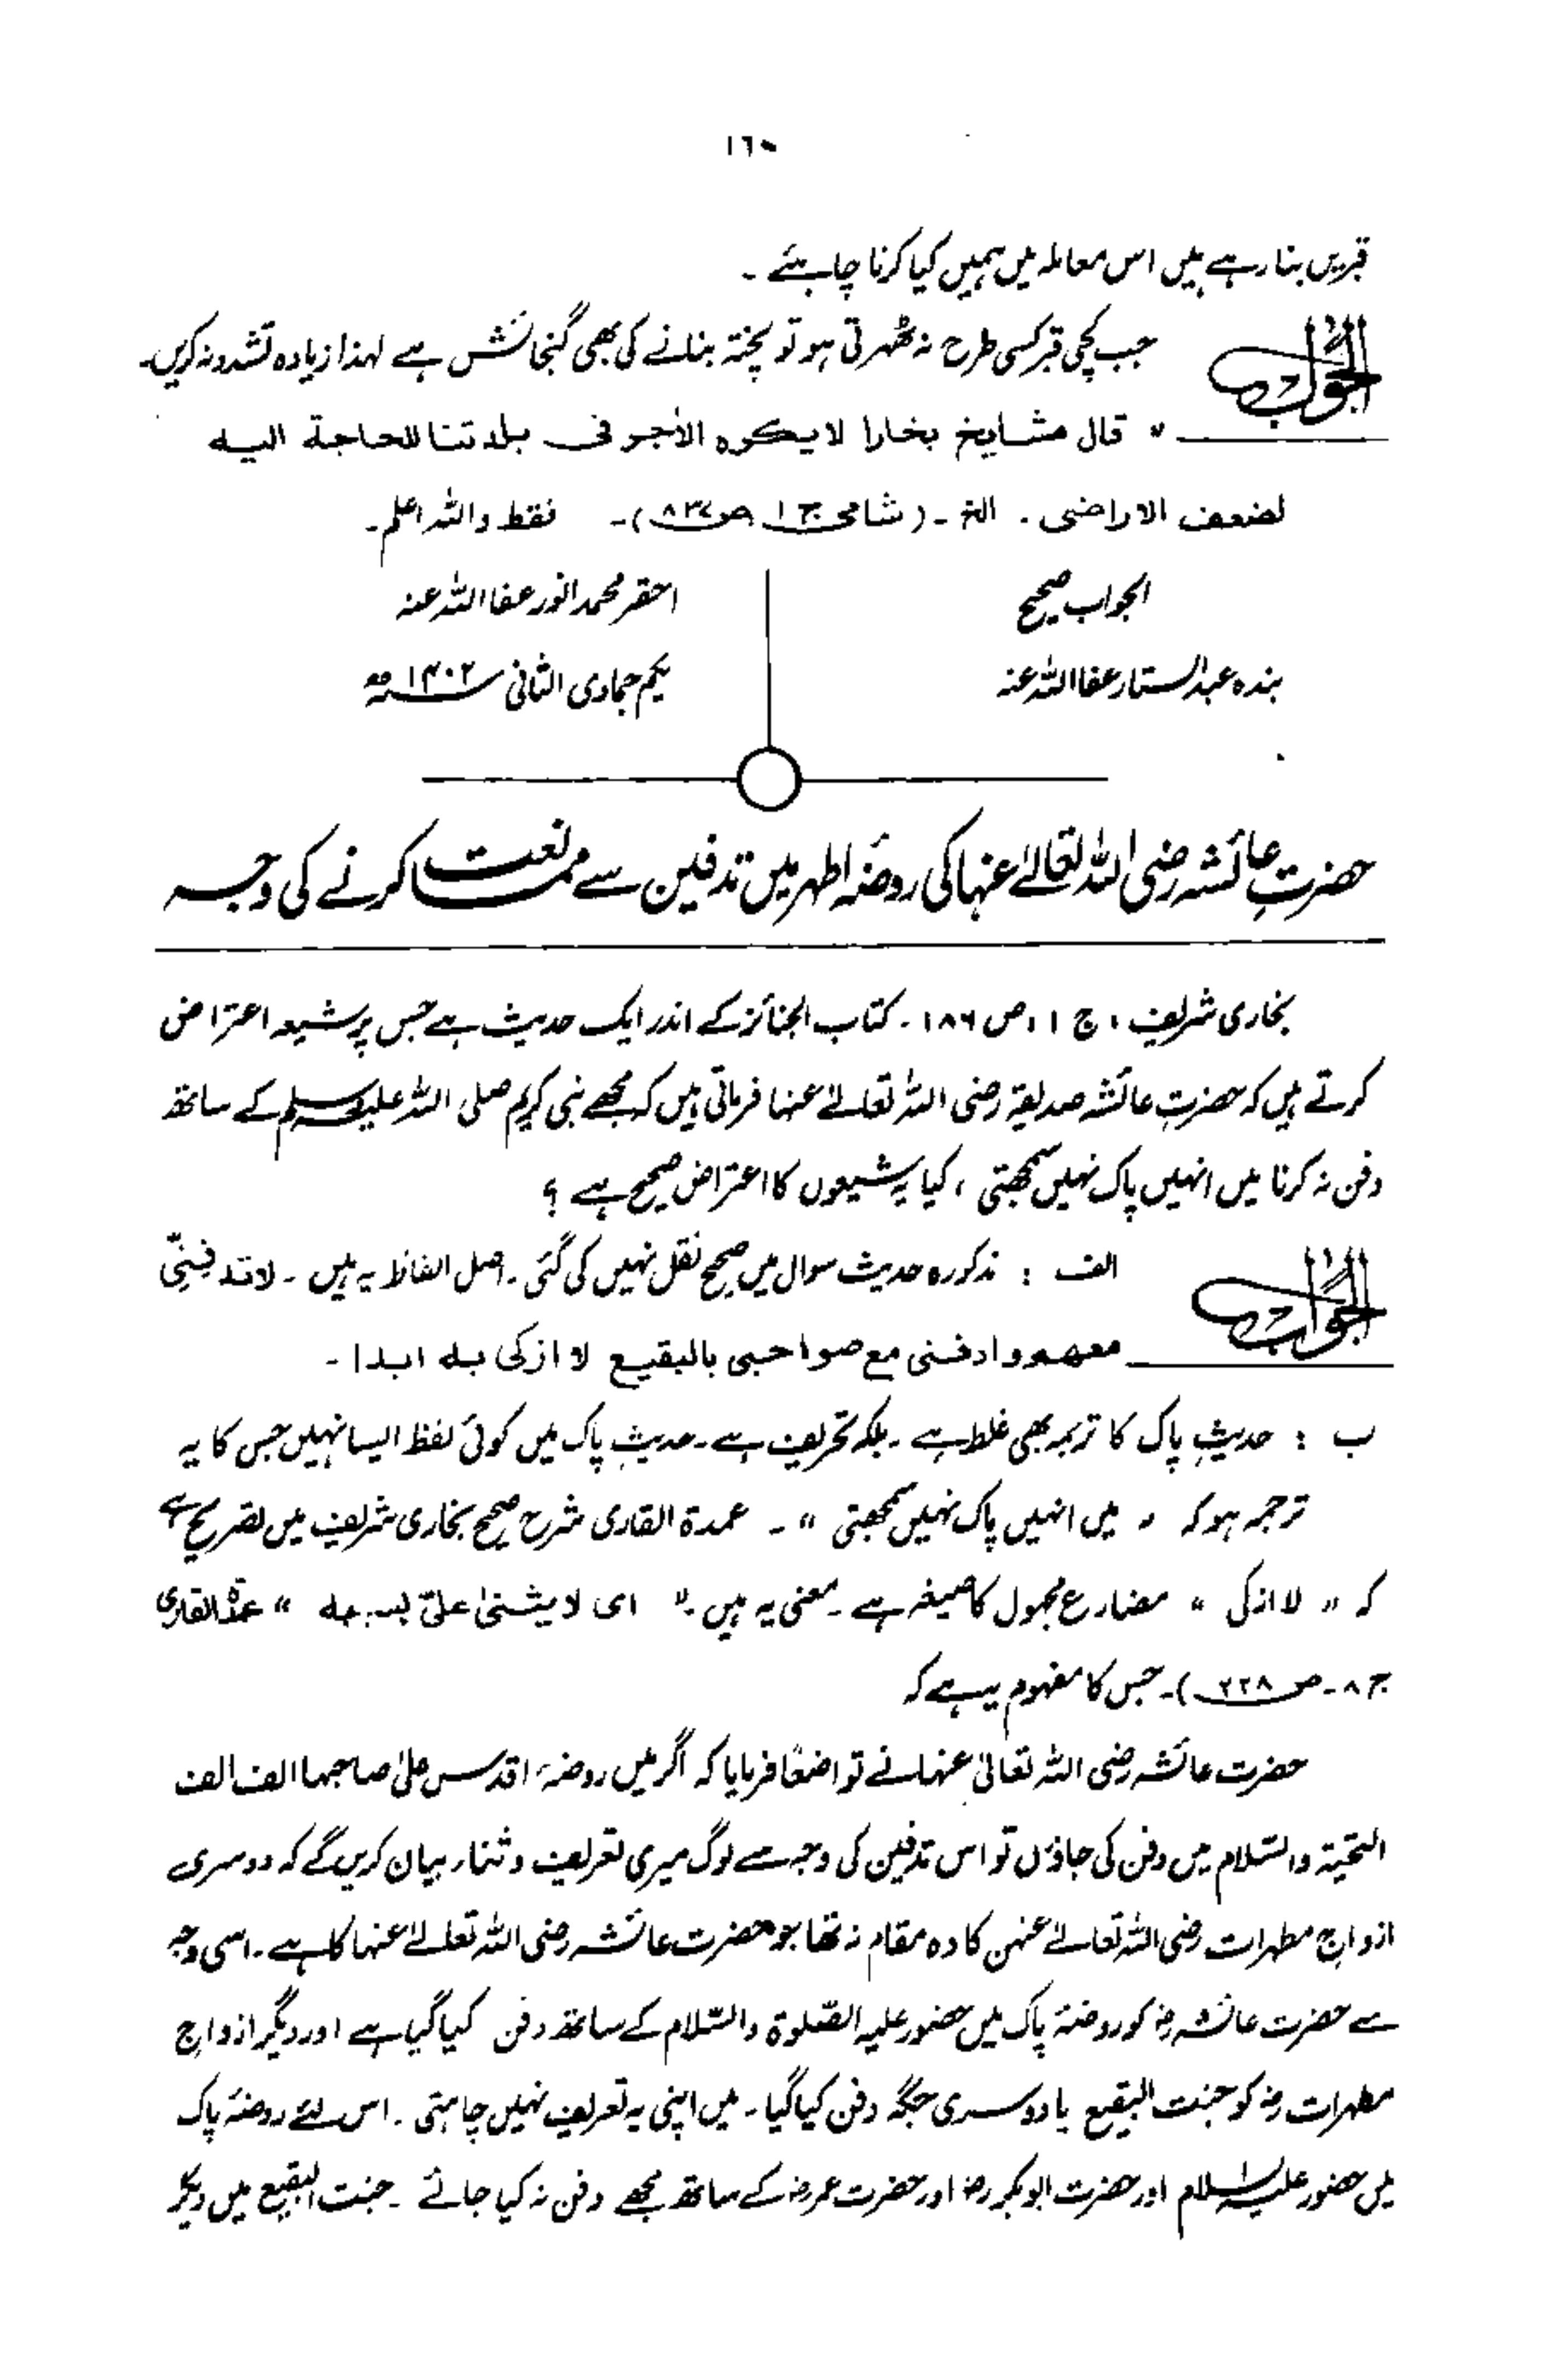 ١٦٠
قبریں بنا رہے ہیں اس معاملہ میں ہمیں کیا کرنا چاہئے ۔
الجواب جب کچی قبر کسی طرح نہ ٹھہرتی ہو تو پختہ بنانے کی بھی گنجائش ہے لہذا زیادہ تشدد نہ کریں۔
" قال مشایخ بخارا لا یکره الآجر فی بلدتنا للحاجة الیه
لضعف الاراضی . الخ ۔ (شامی ج ۱ ص ۸۳۷)۔ فقط واللہ اعلم۔
الجواب صحیح
بندہ عبدالستار عفا اللہ عنہ
احقر محمد انور عفا اللہ عنہ
یکم جمادی الثانی ۱۴۰۲ھ
حضرتِ عائشہ رضی اللہ تعالےٰ عنہا کی روضۂ اطہر میں تدفین سے ممانعت کرنے کی وجہ
بخاری شریف ، ج ۱ ، ص ۱۸۶ ۔ کتاب الجنائز کے اندر ایک حدیث ہے جس پر شیعہ اعتراض
کرتے ہیں کہ حضرتِ عائشہ صدیقہ رضی اللہ تعالےٰ عنہا فرماتی ہیں کہ مجھے نبی کریم صلی اللہ علیہ وسلم کے ساتھ
دفن نہ کرنا میں انہیں پاک نہیں سمجھتی ، کیا یہ شیعوں کا اعتراض صحیح ہے ؟
الجواب الف : مذکورہ حدیث سوال میں صحیح نقل نہیں کی گئی ۔ اصل الفاظ یہ ہیں ۔ لا تدفِنِّی
معهم وادفنی مع صواحبی بالبقیع لا ازکی به ابدا ۔
ب : حدیثِ پاک کا ترجمہ بھی غلط ہے ۔ بلکہ تحریف ہے ۔ حدیثِ پاک میں کوئی لفظ ایسا نہیں جس کا یہ
ترجمہ ہو کہ " میں انہیں پاک نہیں سمجھتی " ۔ عمدة القاری شرح صحیح بخاری شریف میں تصریح ہے
کہ " لا ازکی " مضارع مجہول کا صیغہ ہے ۔ معنی یہ ہیں ۔ " ای لا یثنیٰ علیّ بسببه " عمدۃ القاری
ج ۸ ۔ ص ۲۲۸)۔ جس کا مفہوم یہ ہے کہ
حضرت عائشہ رضی اللہ تعالیٰ عنہا نے تواضعًا فرمایا کہ اگر میں روضۂ اقدس علیٰ صاحبہا الف الف
التحیۃ والسّلام میں دفن کی جاؤں تو اس تدفین کی وجہ سے لوگ میری تعریف و ثناء بیان کریں گے کہ دوسری
ازواجِ مطہرات رضی اللہ تعالےٰ عنہن کا وہ مقام نہ تھا جو حضرت عائشہ رضی اللہ تعالےٰ عنہا کا ہے ۔ اسی وجہ
سے حضرت عائشہ رض کو روضۂ پاک میں حضور علیہ الصّلوۃ والسّلام کے ساتھ دفن کیا گیا ہے اور دیگر ازواج
مطہرات رض کو جنت البقیع یا دوسری جگہ دفن کیا گیا ۔ میں اپنی یہ تعریف نہیں چاہتی ۔ اس لئے روضۂ پاک
میں حضور علیہ السلام اور حضرت ابوبکر رض اور حضرت عمر رض کے ساتھ مجھے دفن نہ کیا جائے ۔ جنت البقیع میں دیگر